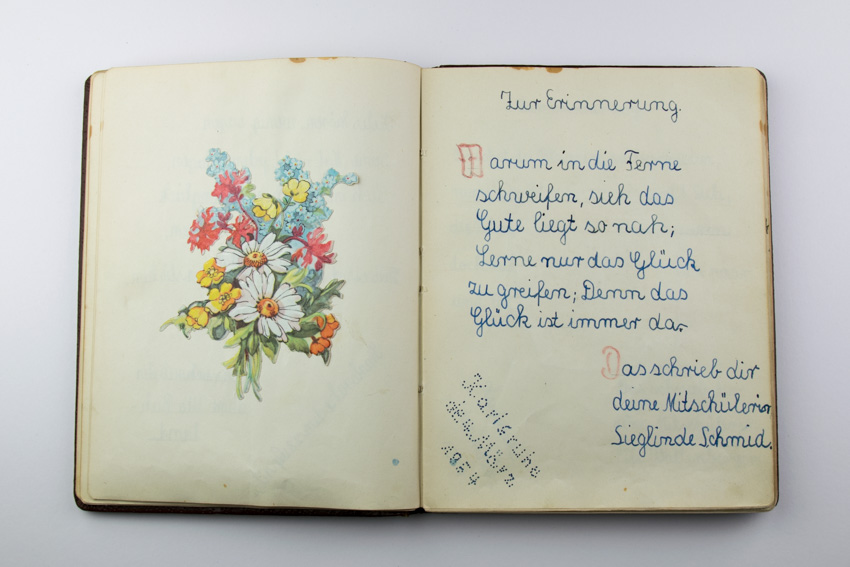 Zur Erinnerung.
Warum in die Ferne
schweifen, sieh das
Gute liegt so nah;
Lerne nur das Glück
zu greifen; Denn das
Glück ist immer da.
Das schrieb dir
deine Mitschülerin
Sieglinde Schmid.
Karlsruhe
den 4. März
1954